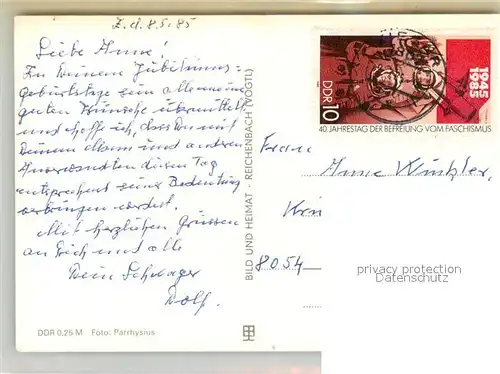 Z. d. 8.5.85
Liebe Anne!
Zu Deinem Jubiläums-
geburtstage zum alle meine
guten Wünsche übermittelt
und hoffe ich, dass Du mit
Deinem Mann und anderen
Anverwandten diesen Tag
entsprechend seiner Bedeutung
verbringen werdet.
Mit herzlichen Grüssen
an Dich und alle
Dein Schwager
Dolf.
DDR 0,25 M Foto: Parrhysius
BILD UND HEIMAT · REICHENBACH (VOGTL)
DDR 10
1945
1985
40. JAHRESTAG DER BEFREIUNG VOM FASCHISMUS
Frau
Anne Winkler,
8054
privacy protection
Datenschutz